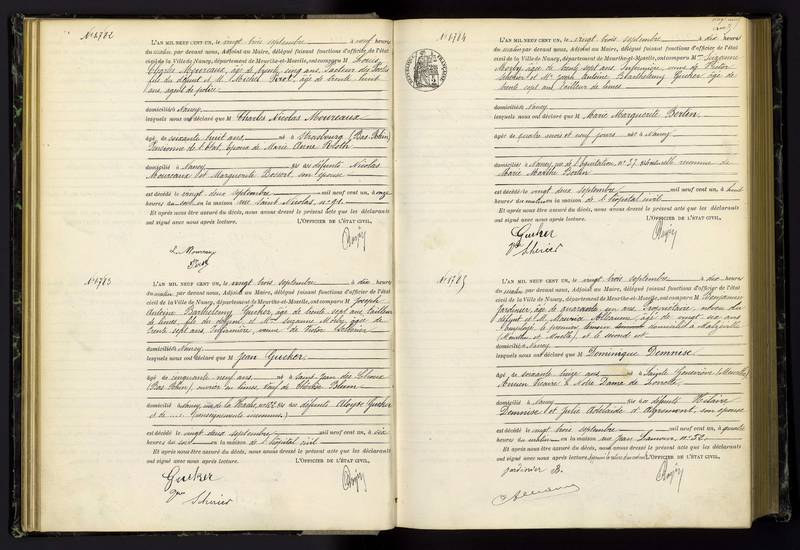 N° 1782
L'AN MIL NEUF CENT UN, le vingt trois septembre à neuf heures
du matin par devant nous, Adjoint au Maire, délégué faisant fonctions d'officier de l'état
civil de la Ville de Nancy, département de Meurthe-et-Moselle, ont comparu M Louis
Charles Moureaux, âge de trente cinq ans, facteur des Postes
fils du défunt et M. Michel Pirot, âge de trente huit
ans, agent de police
domiciliés à Nancy
lesquels nous ont déclaré que M Charles Nicolas Moureaux
âgé de soixante huit ans né à Strasbourg (Bas-Rhin)
Pensionné de l'Etat, époux de Marie Anne
domicilié à Nancy fils de défunts Nicolas
Moureaux et Marguerite Bossert, son épouse
est décédé le vingt deux septembre mil neuf cent un, à onze
heures du soir en la maison rue Saint Nicolas, n° 91.
Et après nous être assuré du décès, nous avons dressé le présent acte que les déclarants
ont signé avec nous après lecture. L'OFFICIER DE L'ÉTAT CIVIL,
N° 1783
L'AN MIL NEUF CENT UN, le vingt trois septembre à dix heures
du matin, par devant nous, Adjoint au Maire, délégué faisant fonctions d'officier de l'état
civil de la Ville de Nancy, département de Meurthe-et-Moselle, ont comparu M Joseph
Antoine Barthélemy Gucker, âgé de trente sept ans, tailleur
de limes, fils du défunt, et Mme Suzanne Morby, âgée de
trente sept ans, infirmière, veuve de Victor
domiciliés à Nancy
lesquels nous ont déclaré que M Jean Gucker
âgé de cinquante neuf ans né à Saint Jean des Choux
(Bas Rhin), ouvrier en limes, veuf de Thérèse
domicilié à Nancy, rue de la Hache, n° 152 fils de défunts Aloyse Gucker
et de (renseignements inconnus)
est décédé le vingt deux septembre mil neuf cent un, à six
heures du soir en la maison de l'hôpital civil
Et après nous être assuré du décès, nous avons dressé le présent acte que les déclarants
ont signé avec nous après lecture. L'OFFICIER DE L'ÉTAT CIVIL,
Gucker
Vve Scherier
N° 1784
L'AN MIL NEUF CENT UN, le vingt trois septembre à dix heures
du matin par devant nous, Adjoint au Maire, délégué faisant fonctions d'officier de l'état
civil de la Ville de Nancy, département de Meurthe-et-Moselle, ont comparu Mme Suzanne
Morby, âgée de trente sept ans, infirmière, veuve de Victor
et M. Joseph Antoine Barthélemy Gucker, âgé de
trente sept ans, tailleur de limes
domiciliés à Nancy
lesquels nous ont déclaré que M Marie Marguerite Bertin
âgée de quatre mois et neuf jours née à Nancy
domiciliée à Nancy, rue de l'Équitation, n° 37, fille naturelle reconnue de
Marie Marthe Bertin
est décédée le vingt deux septembre mil neuf cent un, à huit
heures du matin en la maison de l'hôpital civil
Et après nous être assuré du décès, nous avons dressé le présent acte que les déclarants
ont signé avec nous après lecture. L'OFFICIER DE L'ÉTAT CIVIL,
Gucker
Vve Scherier
N° 1785
L'AN MIL NEUF CENT UN, le vingt trois septembre à dix heures
du matin par devant nous, Adjoint au Maire, délégué faisant fonctions d'officier de l'état
civil de la Ville de Nancy, département de Meurthe-et-Moselle, ont comparu M Benjamin
Jardinier, âgé de quarante un ans, propriétaire, neveu du
défunt et M. Maurice, âgé de vingt six ans
employé, le premier domicilié à Malzéville
(Meurthe et Moselle), et le second est
domiciliés à Nancy
lesquels nous ont déclaré que M Dominique Demnise
âgé de soixante treize ans né à Sainte Geneviève (Meurthe)
Ancien Vicaire à Notre Dame de Lorette
domicilié à Nancy fils de défunts Hilaire
Demnise et Julie Adélaïde d'Algremont, son épouse
est décédé le vingt trois septembre mil neuf cent un, à quatre
heures du matin en la maison rue Jean Lamour, n° 52.
Et après nous être assuré du décès, nous avons dressé le présent acte que les déclarants
ont signé avec nous après lecture. L'OFFICIER DE L'ÉTAT CIVIL,
Jardinier B.